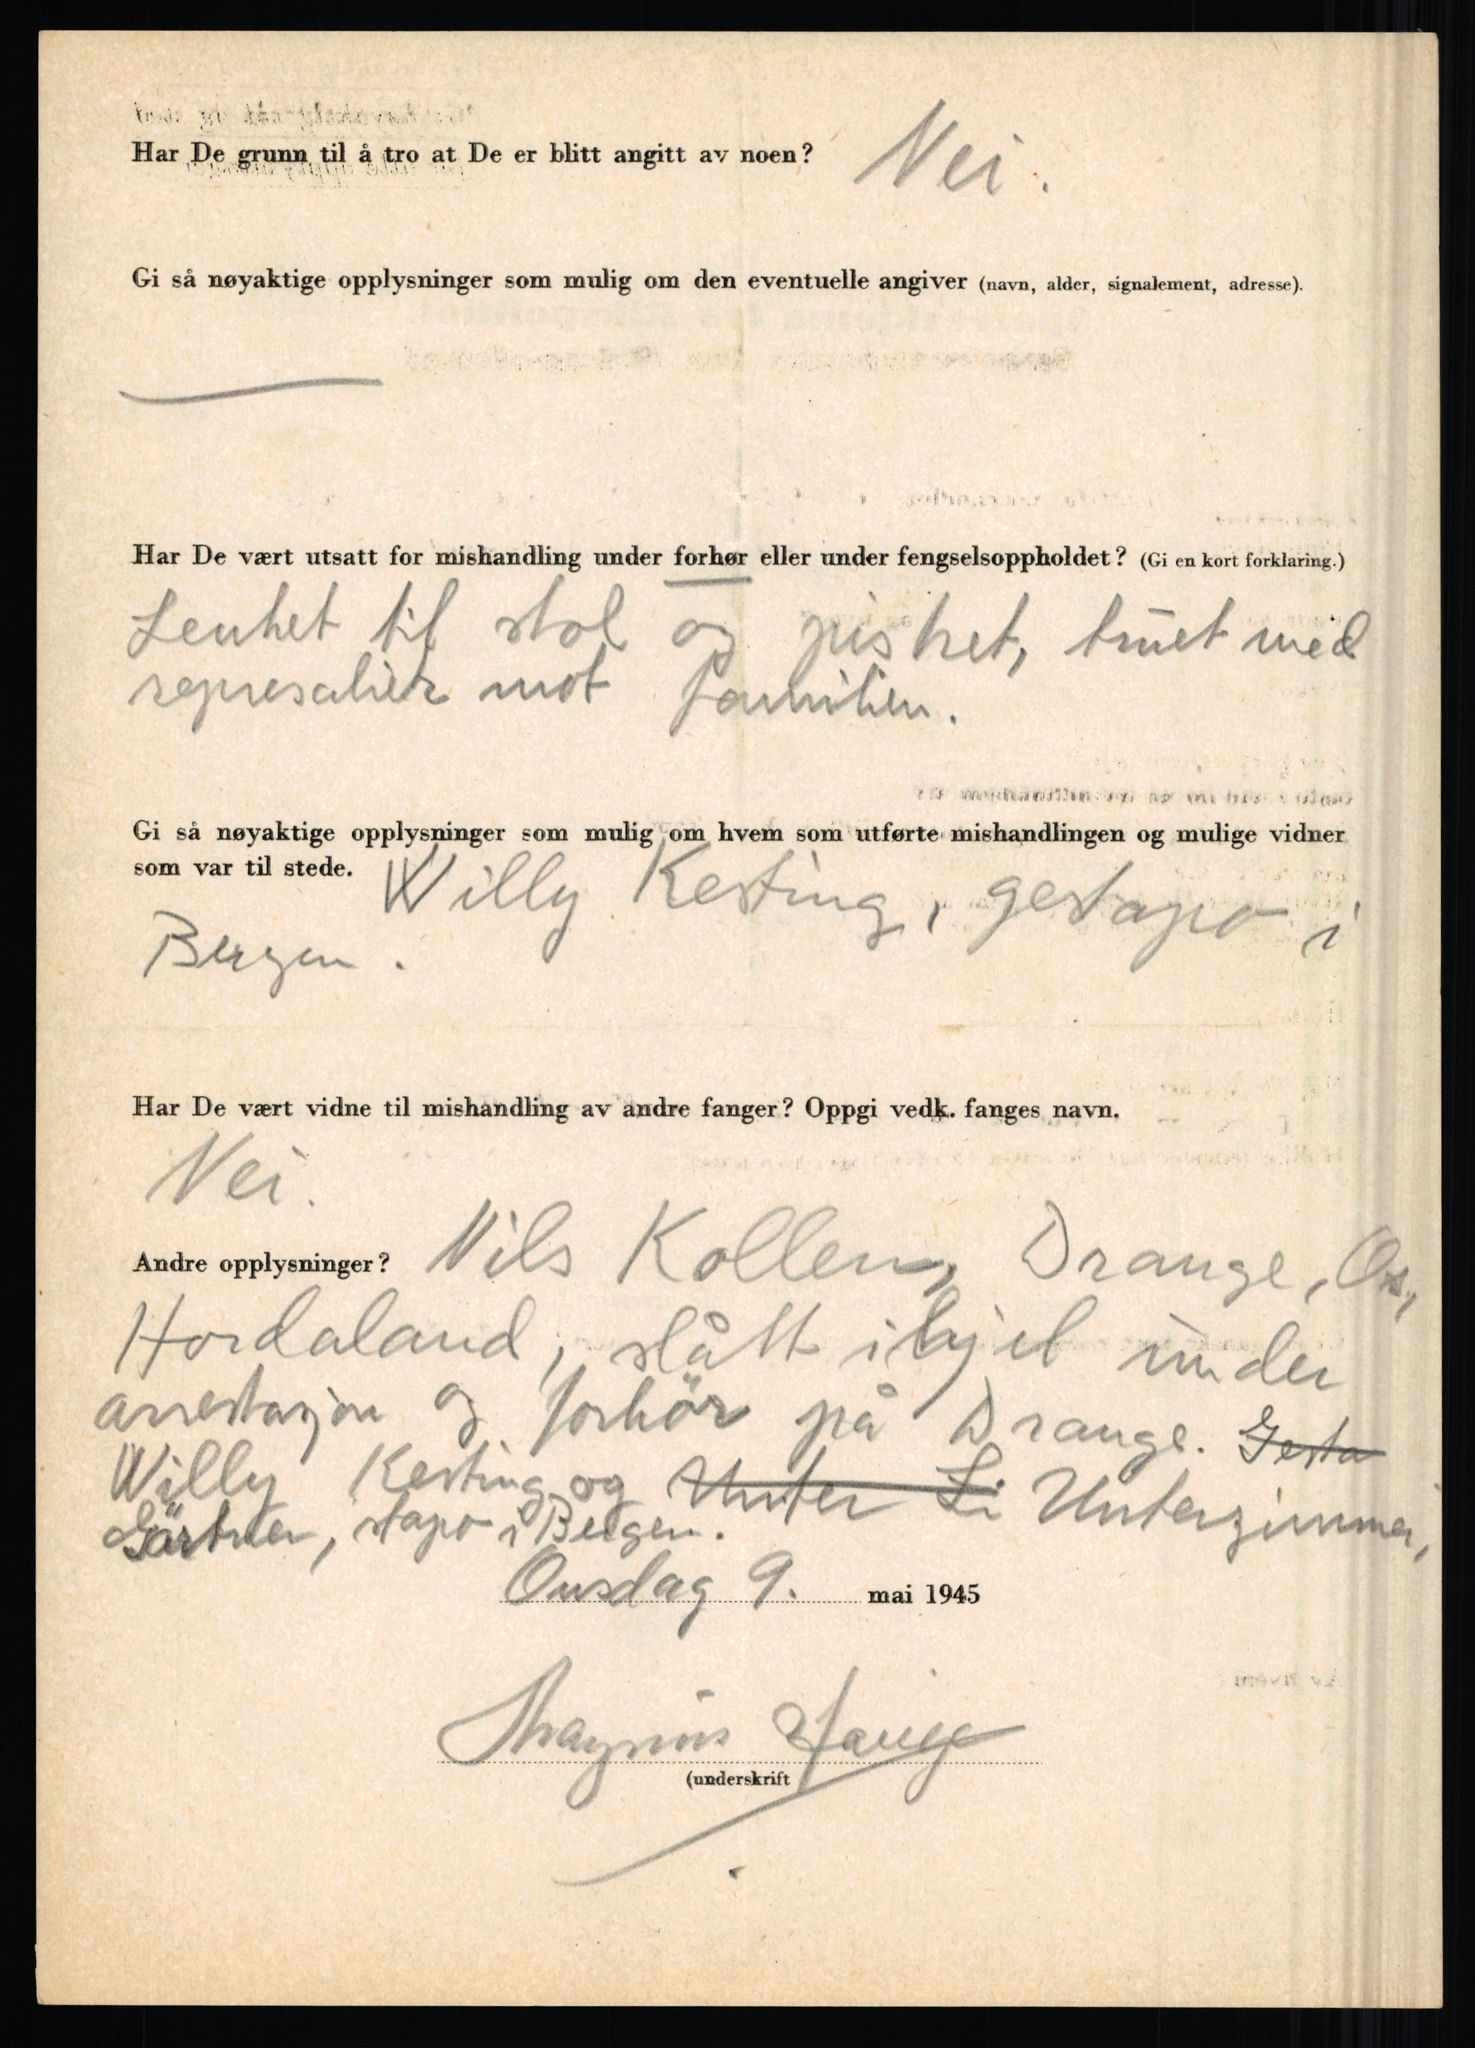 Har De grunn til å tro at De er blitt angitt av noen? Nei.
Gi så nøyaktige opplysninger som mulig om den eventuelle angiver (navn, alder, signalement, adresse).
Har De vært utsatt for mishandling under forhør eller under fengselsoppholdet? (Gi en kort forklaring.)
Lenket til stol og pisket, truet med
represalier mot familien.
Gi så nøyaktige opplysninger som mulig om hvem som utførte mishandlingen og mulige vidner
som var til stede. Willy Kesting, gestapo i
Bergen.
Har De vært vidne til mishandling av andre fanger? Oppgi vedk. fanges navn.
Nei.
Andre opplysninger? Nils Kollen, Drange, Os,
Hordaland, slått ihjel under
arrestasjon og forhör på Drange. Gesta
Willy Kesting og Unter Li Unterzimmer,
Gärtner, stapo i Bergen.
Onsdag 9. mai 1945
Magnus Hauge
(underskrift